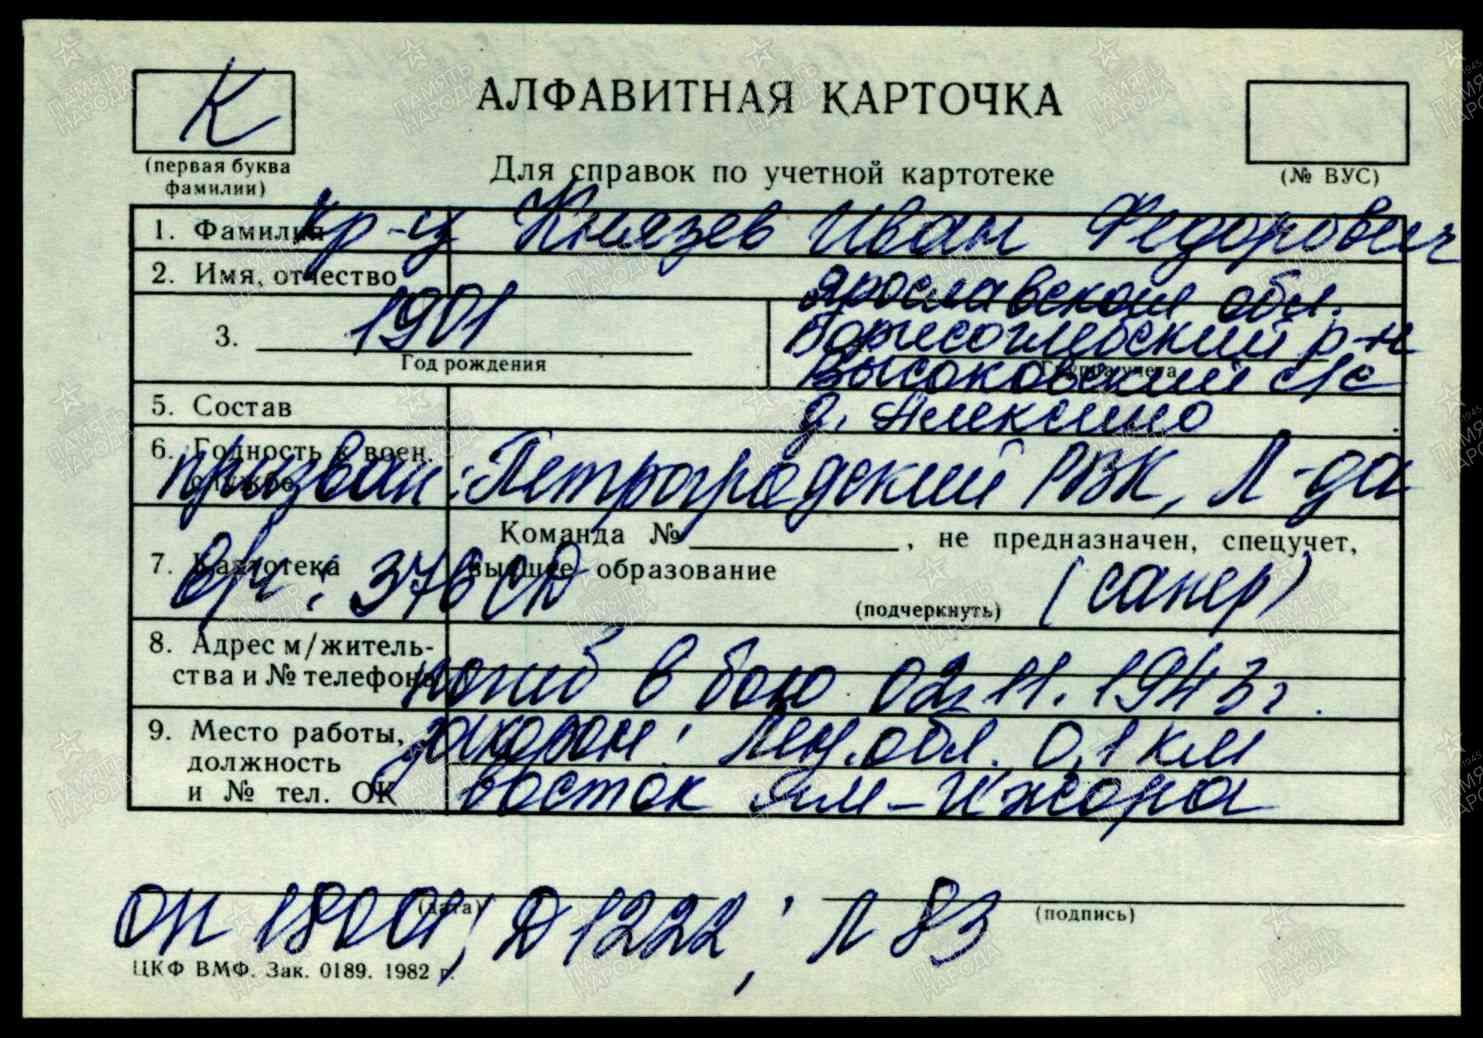 К
АЛФАВИТНАЯ КАРТОЧКА
(первая буква
фамилии)
Для справок по учетной картотеке
(№ ВУС)
1. Фамилия кр-ц Князев Иван Федорович
2. Имя, отчество
Ярославской обл.
3. 1901 Борисоглебский р-н
Год рождения
Группа учета
Высоковский с/с
5. Состав
д. Алексино
6. Годность к воен.
службе
призван: Петроградский РВК, Л-да
Команда № , не предназначен, спецучет,
7. Картотека высшее образование
в/ч: 376 СД (сапер)
(подчеркнуть)
8. Адрес м/житель-
ства и № телефона
погиб в бою 02.11.1943 г.
9. Место работы,
захорон: Лен. обл. 0,1 км
должность
и № тел. ОК
восток Ям-Ижора
ОП 18001; Д 1222; Л 83
(дата)
(подпись)
ЦКФ ВМФ. Зак. 0189. 1982 г.
ПАМЯТЬ НАРОДА